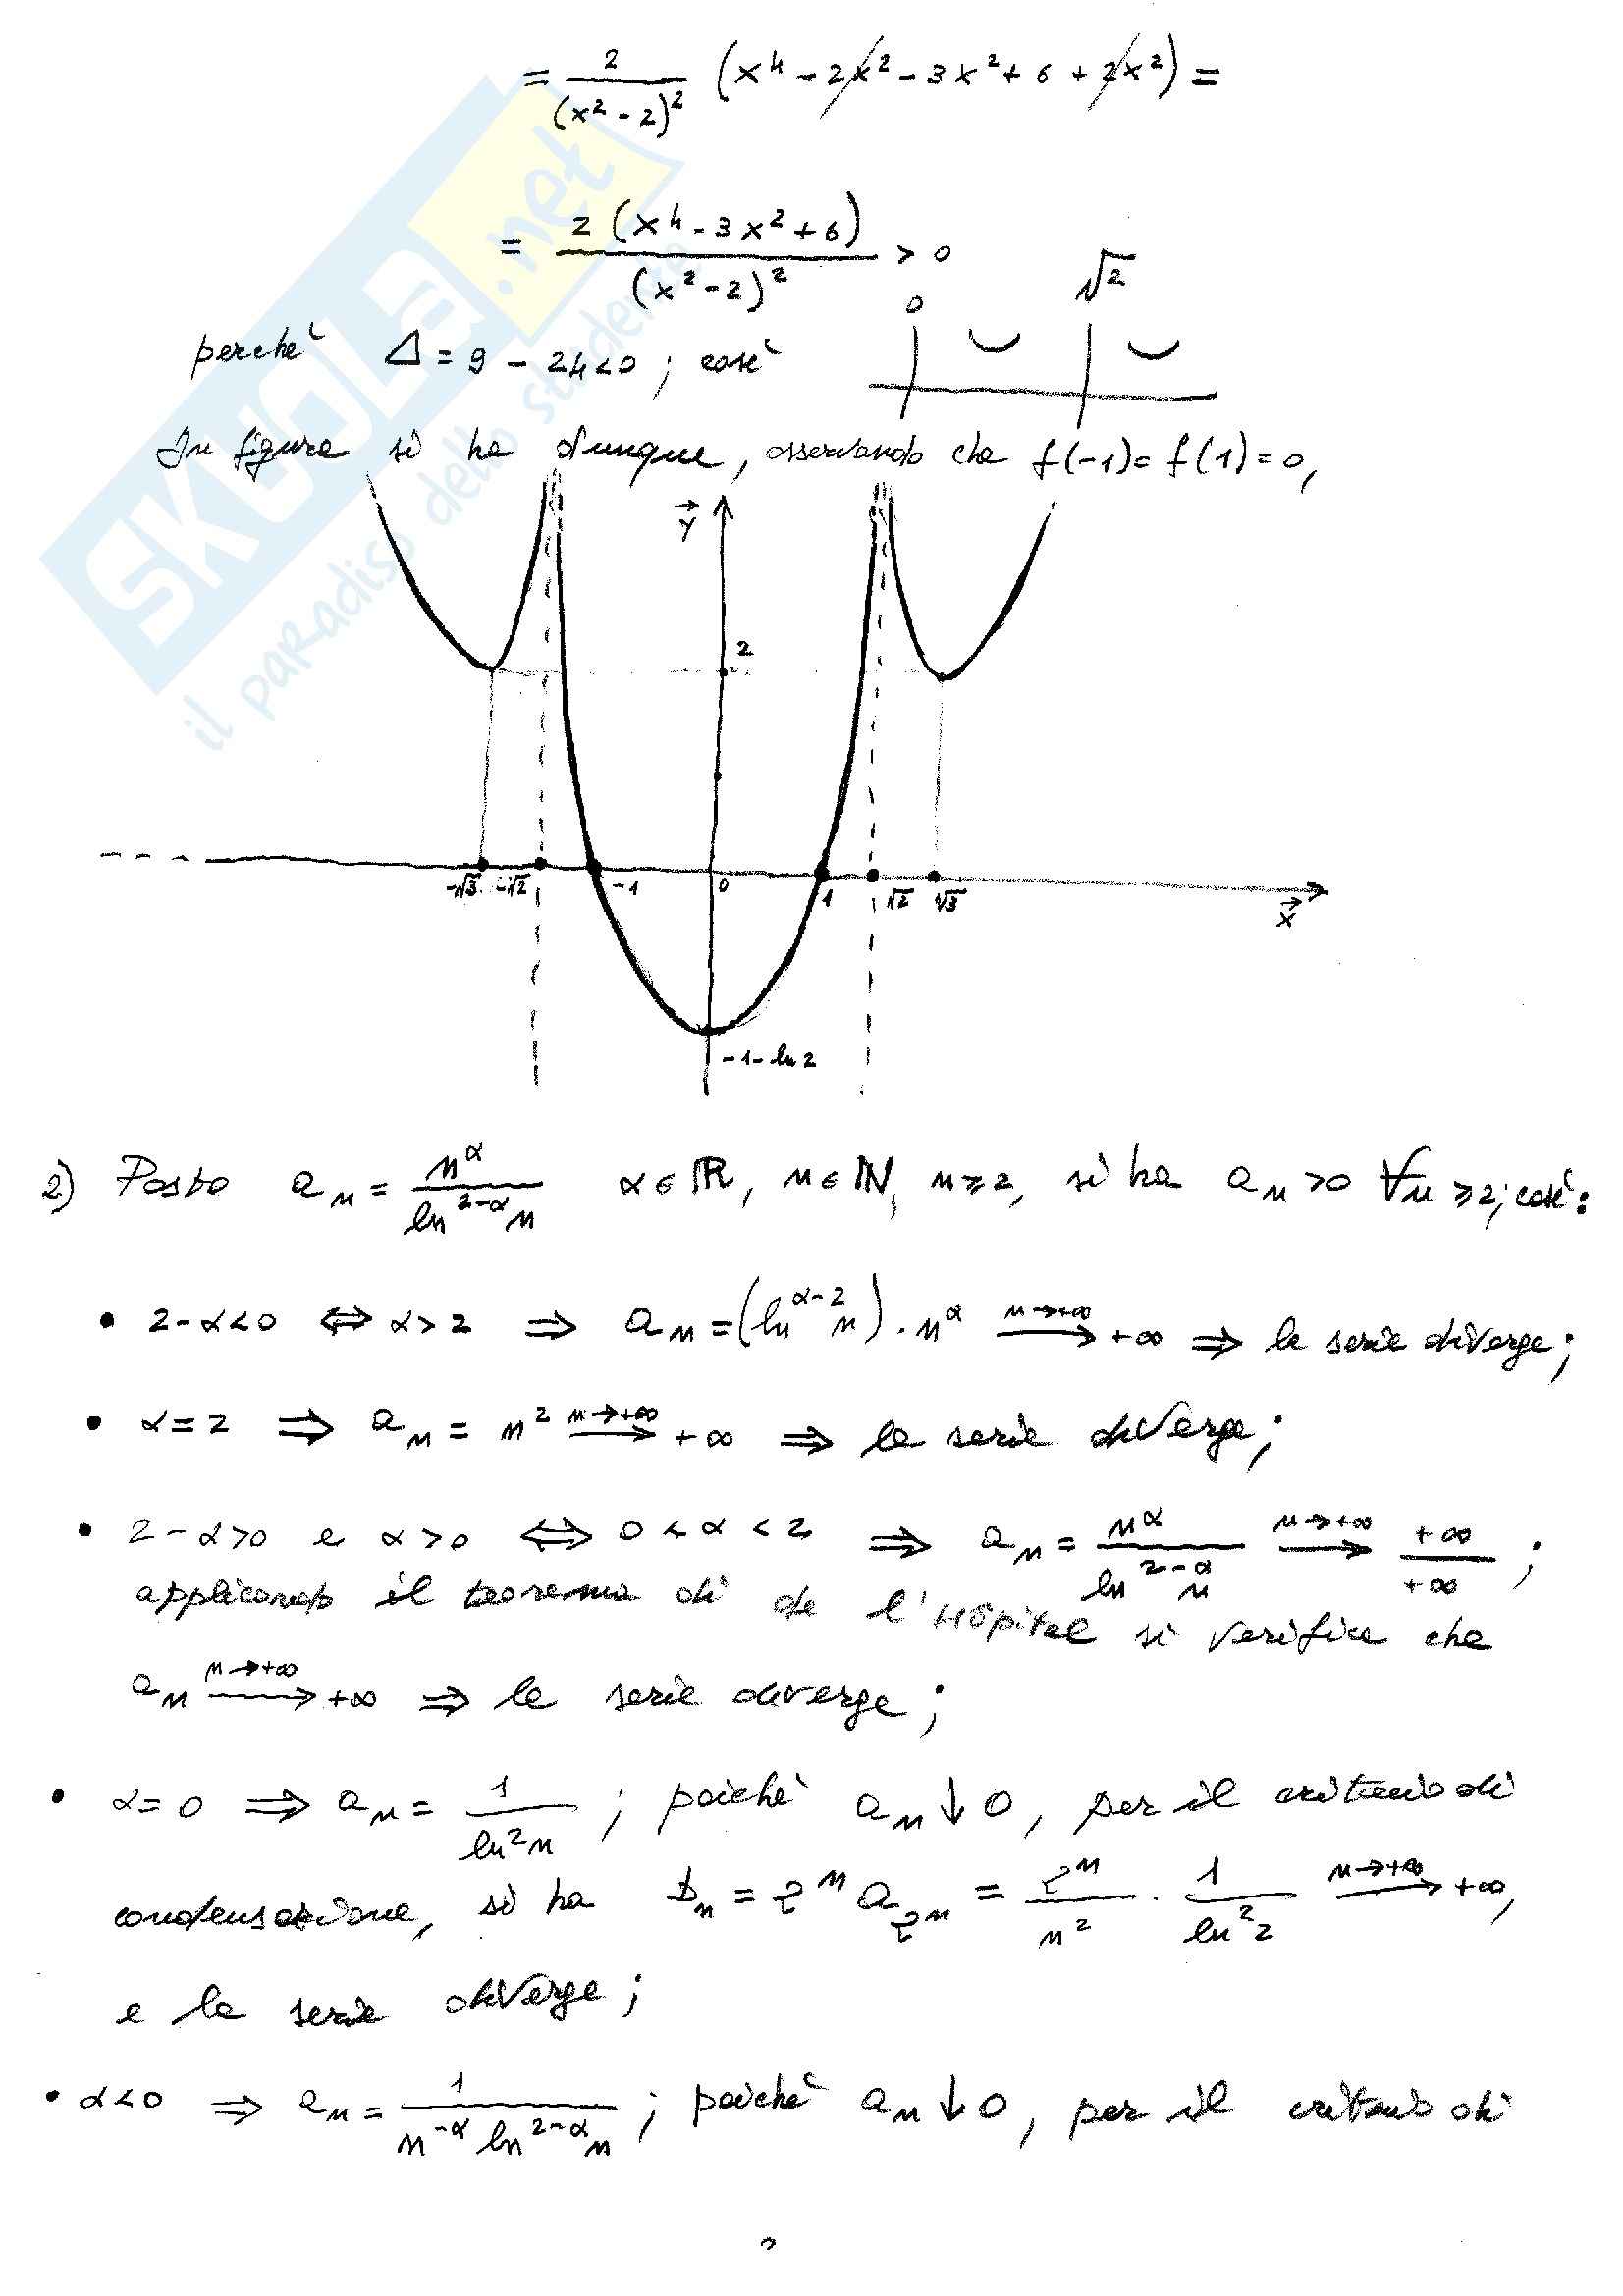 = 2/(x²-2)² (x⁴ - 2x² - 3x² + 6 + 2x²) =
= 2(x⁴ - 3x² + 6)/(x²-2)² > 0
0 √2
perchè Δ = 9 - 24 < 0 ; così
In figura si ha dunque, osservando che f(-1) = f(1) = 0,
y
2
-√3 -√2 -1 0 1 √2 √3
x
-1-ln2
2) Posto aₙ = n^α/ln^(2-α) n α ∈ ℝ, n ∈ ℕ, n ≥ 2, si ha aₙ > 0 ∀n ≥ 2; così:
• 2-α<0 ⇔ α>2 ⇒ aₙ = (ln^(α-2) n) · n^α n→+∞ ⟶ +∞ ⇒ la serie diverge;
• α=2 ⇒ aₙ = n² n→+∞ ⟶ +∞ ⇒ la serie diverge;
• 2-α>0 e α>0 ⇔ 0<α<2 ⇒ aₙ = n^α/ln^(2-α) n n→+∞ ⟶ +∞/+∞ ;
applicando il teorema di de l'Hôpital si verifica che
aₙ n→+∞ ⟶ +∞ ⇒ la serie diverge;
• α=0 ⇒ aₙ = 1/ln²n ; poichè aₙ ↓ 0, per il criterio di
condensazione, si ha bₙ = 2ⁿ a_(2ⁿ) = 2ⁿ/n² · 1/ln²2 n→+∞ ⟶ +∞,
e la serie diverge;
• α<0 ⇒ aₙ = 1/(n^(-α) ln^(2-α) n) ; poichè aₙ ↓ 0, per il criterio di
SKUOLA.net
il paradiso dello studente